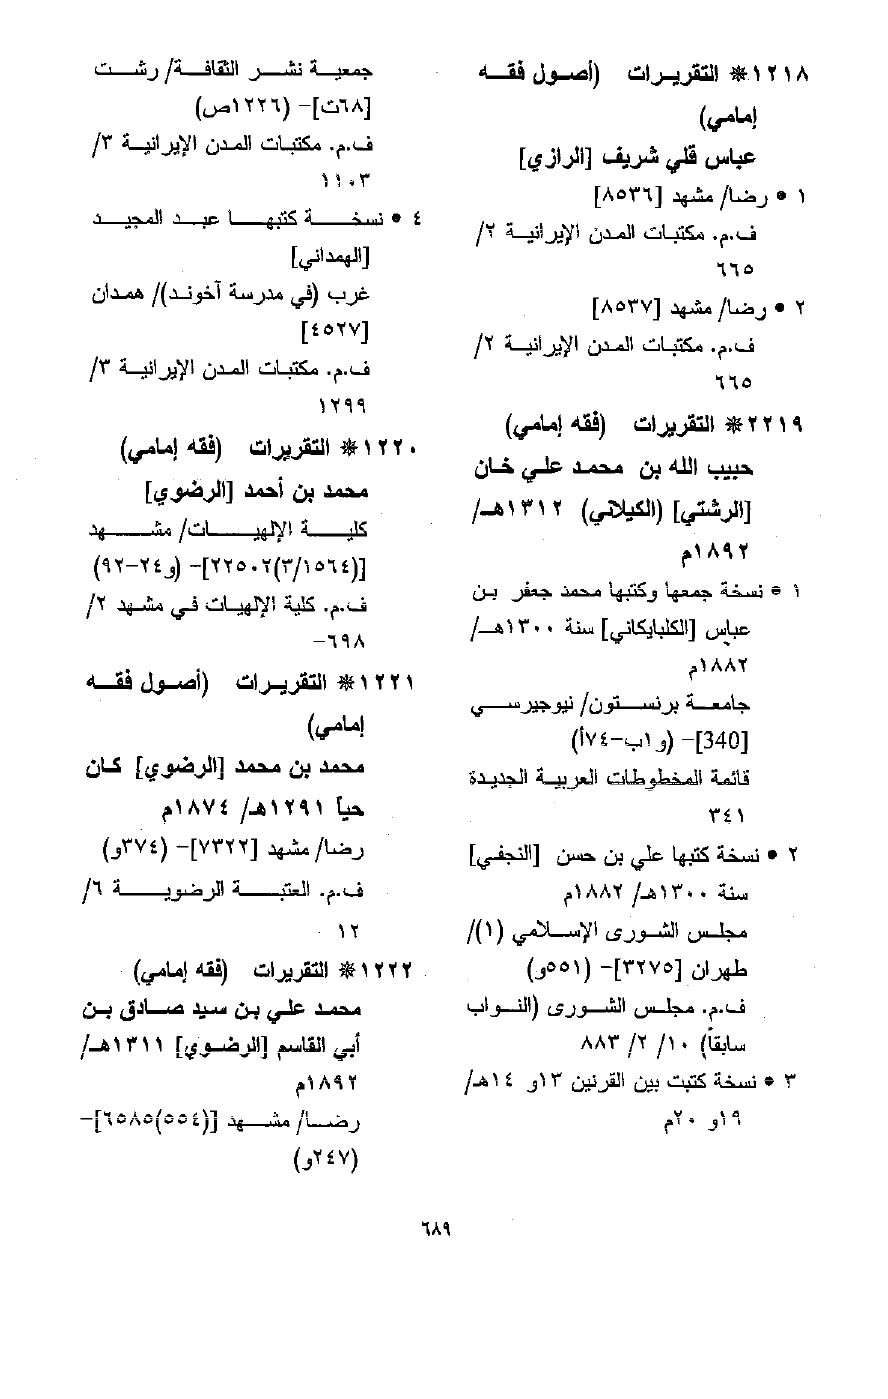 ١٢١٨* التقريرات (أصول فقه
إمامي)
عباس قلي شريف [الرازي]
١ * رضا/ مشهد [٨٥٣٦]
ف.م. مكتبات المدن الإيرانية ٢/
٦٦٥
٢ * رضا/ مشهد [٨٥٣٧]
ف.م. مكتبات المدن الإيرانية ٢/
٦٦٥
٢٢١٩* التقريرات (فقه إمامي)
حبيب الله بن محمد علي خان
[الرشتي] (الكيلاني) ١٣١٢هـ/
١٨٩٢م
١ * نسخة جمعها وكتبها محمد جعفر بن
عباس [الكلبايكاني] سنة ١٣٠٠هـ/
١٨٨٢م
جامعة برنستون/ نيوجيرسي
[340]- (و١ب-٧٤أ)
قائمة المخطوطات العربية الجديدة
٣٤١
٢ * نسخة كتبها علي بن حسن [النجفي]
سنة ١٣٠٠هـ/ ١٨٨٢م
مجلس الشورى الإسلامي (١)/
طهران [٣٢٧٥]- (٥٥١و)
ف.م. مجلس الشورى (النواب
سابقاً) ١٠/ ٢/ ٨٨٣
٣ * نسخة كتبت بين القرنين ١٣و ١٤هـ/
١٩و ٢٠م
جمعية نشر الثقافة/ رشت
[٦٨ت]- (١٢٢٦ص)
ف.م. مكتبات المدن الإيرانية ٣/
١١٠٣
٤ * نسخة كتبها عبد المجيد
[الهمداني]
غرب (في مدرسة آخوند)/ همدان
[٤٥٢٧]
ف.م. مكتبات المدن الإيرانية ٣/
١٢٩٩
١٢٢٠* التقريرات (فقه إمامي)
محمد بن أحمد [الرضوي]
كلية الإلهيات/ مشهد
[(٣/١٥٦٤)٢٢٥٠٢]- (و٢٤-٩٢)
ف.م. كلية الإلهيات في مشهد ٢/
٦٩٨-
١٢٢١* التقريرات (أصول فقه
إمامي)
محمد بن محمد [الرضوي] كان
حياً ١٢٩١هـ/ ١٨٧٤م
رضا/ مشهد [٧٣٢٢]- (٣٧٤و)
ف.م. العتبة الرضوية ٦/
١٢
١٢٢٢* التقريرات (فقه إمامي)
محمد علي بن سيد صادق بن
أبي القاسم [الرضوي] ١٣١١هـ/
١٨٩٢م
رضا/ مشهد [(٥٥٤)٦٥٨٥]-
(٢٤٧و)
٦٨٩